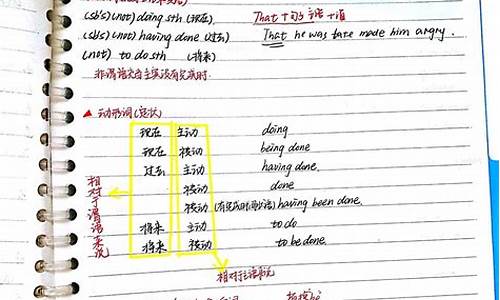 (sb's)(not) doing sth (现在) That + 句子 主语 + 谓
(sb's)(not) having done (过去) That he was late made him angry.
(not) to do sth (将来)
非谓语做主语没有完成时.
▲ 动形词(定状)
现在 主动 doing
现在 被动 being done
过去 主动 having done.
被动 done
被动 (有完成时间状语) having been done.
将来 主动 to do
将来 被动 to be done.
相对于谓语来说
相对主语来说